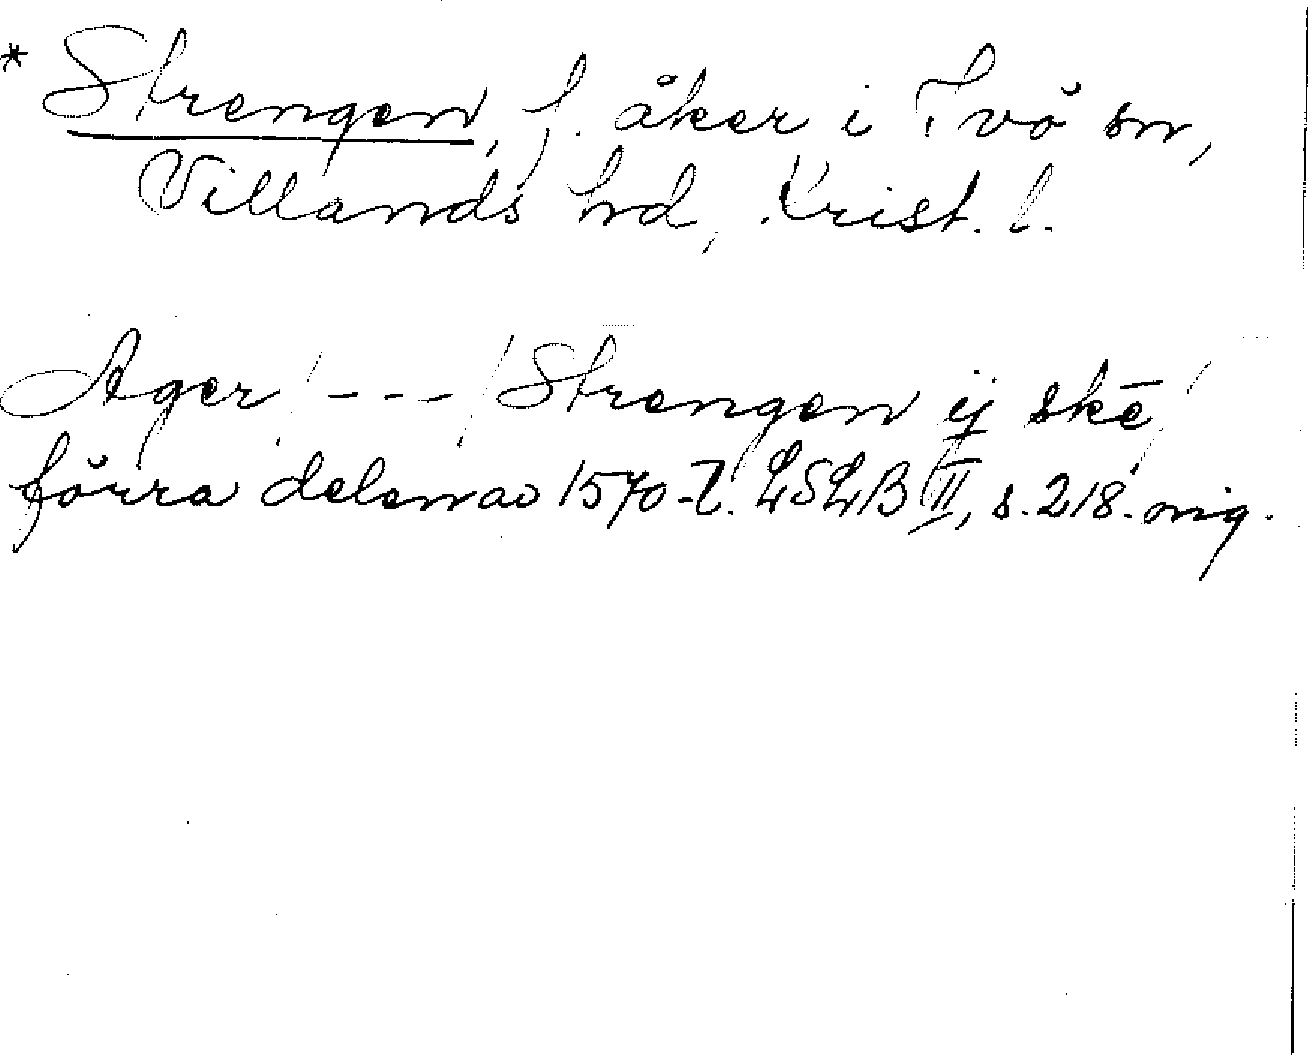 * Strengen, f. åker i Ivö sn,
Villands hd, Krist. l.
Ager /---/ Strengen ij ske
förra delen av 1570-t. LSLB II, s. 218. orig.